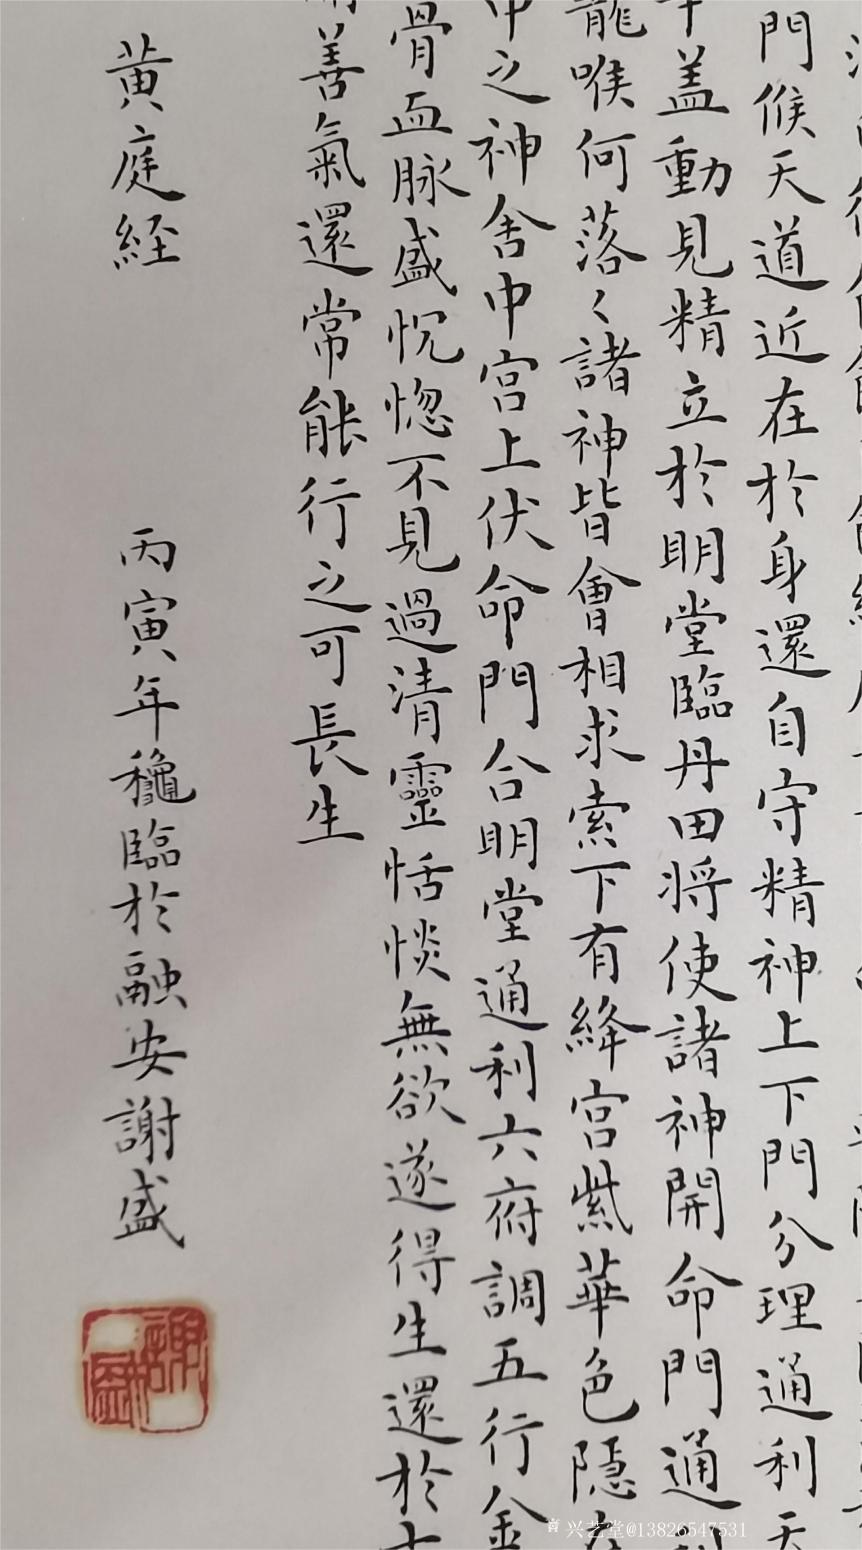 門候天道近在於身還自守精神上下門分理通利天
蓋動見精立於明堂臨丹田将使諸神開命門通
龍喉何落々諸神皆會相求索下有絳宮紫華色隱
中之神舍中宮上伏命門合明堂通利六府調五行金
骨血脉盛怳惚不見過清靈恬惔無欲遂得生還於
善氣還常能行之可長生
黄庭経
丙寅年龝臨於融安謝盛
兴艺堂@13826547531